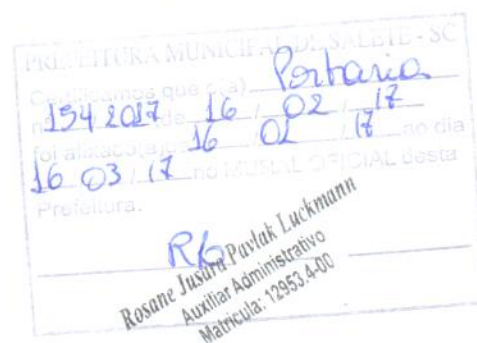 PREFEITURA MUNICIPAL DE SALETE - SC
Certificamos que o(a) Portaria
154 2017 de 16 / 02 / 17
foi afixado(a) 16 02 / 17 no dia
16 03 / 17 no MURAL OFICIAL desta
Prefeitura.
Rosane Jusara Pavlak Luckmann
Auxiliar Administrativo
Matrícula: 12953.4-00